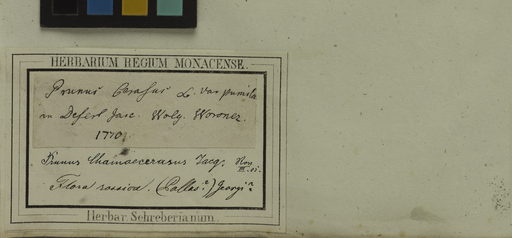 HERBARIUM REGIUM MONACENSE.
Prunus Cerasus L. var pumila
in Desert Jaic. Wolg. Woronez.
1770.
Prunus Chamaecerasus Jacq.
Flora rossica. (Pallas?) Georgi
Herbar. Schreberianum.